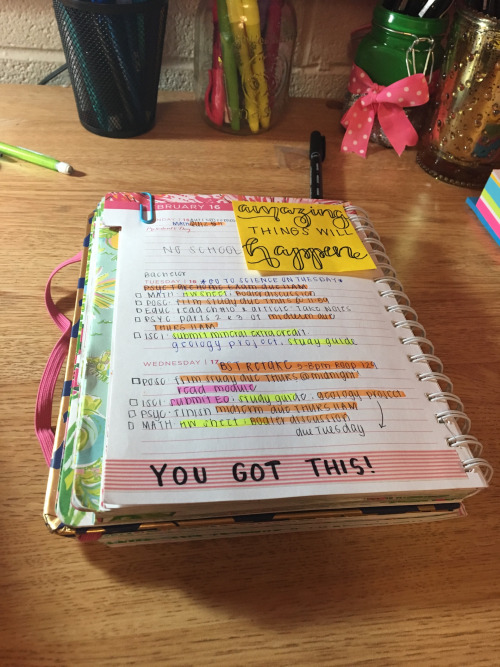 BRUARY 16
amazing
THINGS WILL
happen
NO SCHOOL
Bachelor
TUESDAY *GO TO SCIENCE ON TUESDAY*
PSYC exam due 11AM
MATH HW sheet, board discussion
POSC film study due
EDUC read ch 10 & article take notes
PSYC parts 2 & 3 of midterm due
THURS 11AM
ISCI submit mineral extra credit
geology project, study guide
WEDNESDAY | 17 BST RETAKE 3-8pm ROOP
POSC film study due THURS @ midnight
read module
ISCI submit EQ, study guide, geology project
PSYC finish midterm due THURS 11AM
MATH HW sheet board discussion
due TUESDAY
YOU GOT THIS!